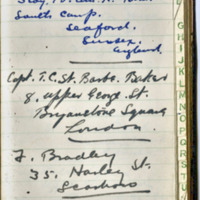 South Camp.
Seaford.
Sussex.
England.
Capt. T. C. St. Barbe. Baker
8. Upper George St.
Bryanstone Square
London
F. Bradley
35. Harley St.
G
H
I
J
K
L
M
N
O
P
Q
R
S
T
U